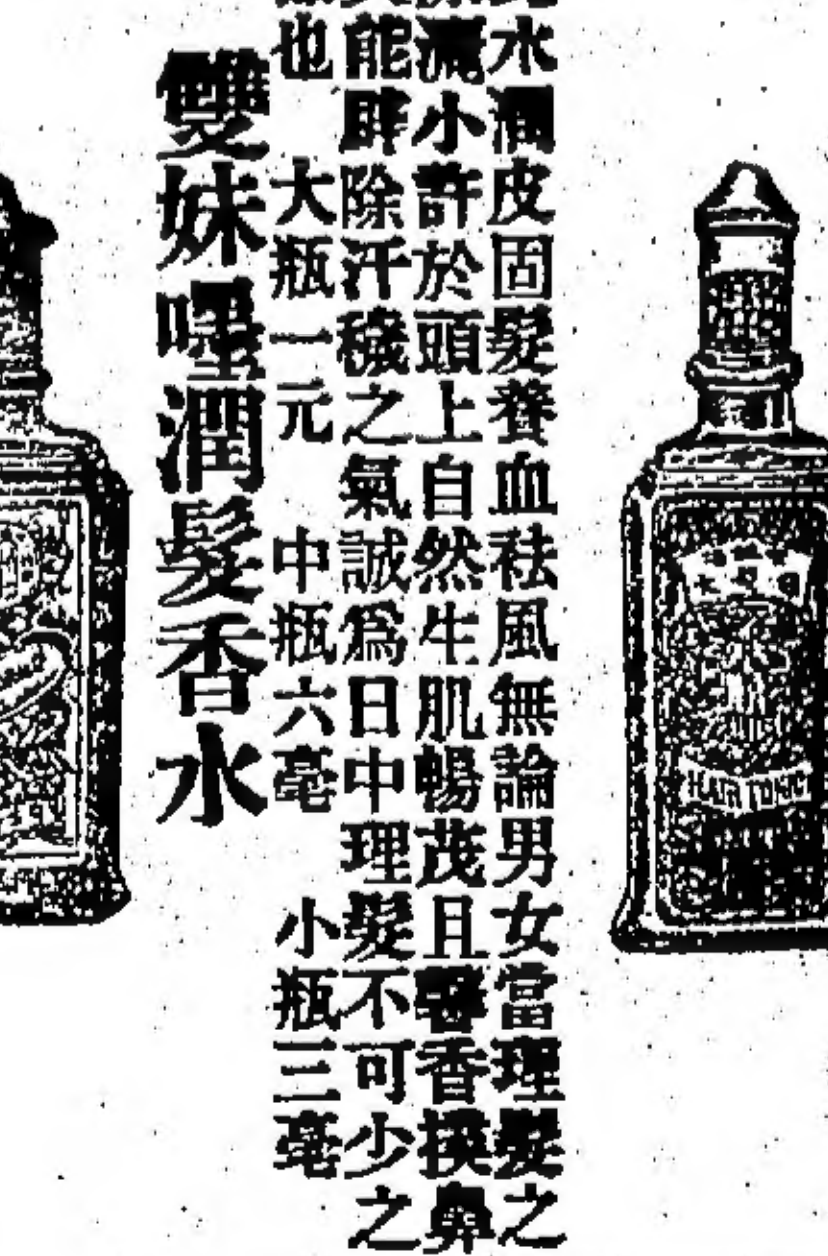 水潤皮固髮養血祛風無論男女當理髮之
灑小許於頭上自然生肌暢茂且馨香撲鼻
能辟除汗穢之氣誠爲日中理髮不可少之
也 大瓶一元 中瓶六毫 小瓶三毫
雙妹嚜潤髮香水
HAIR TONIC